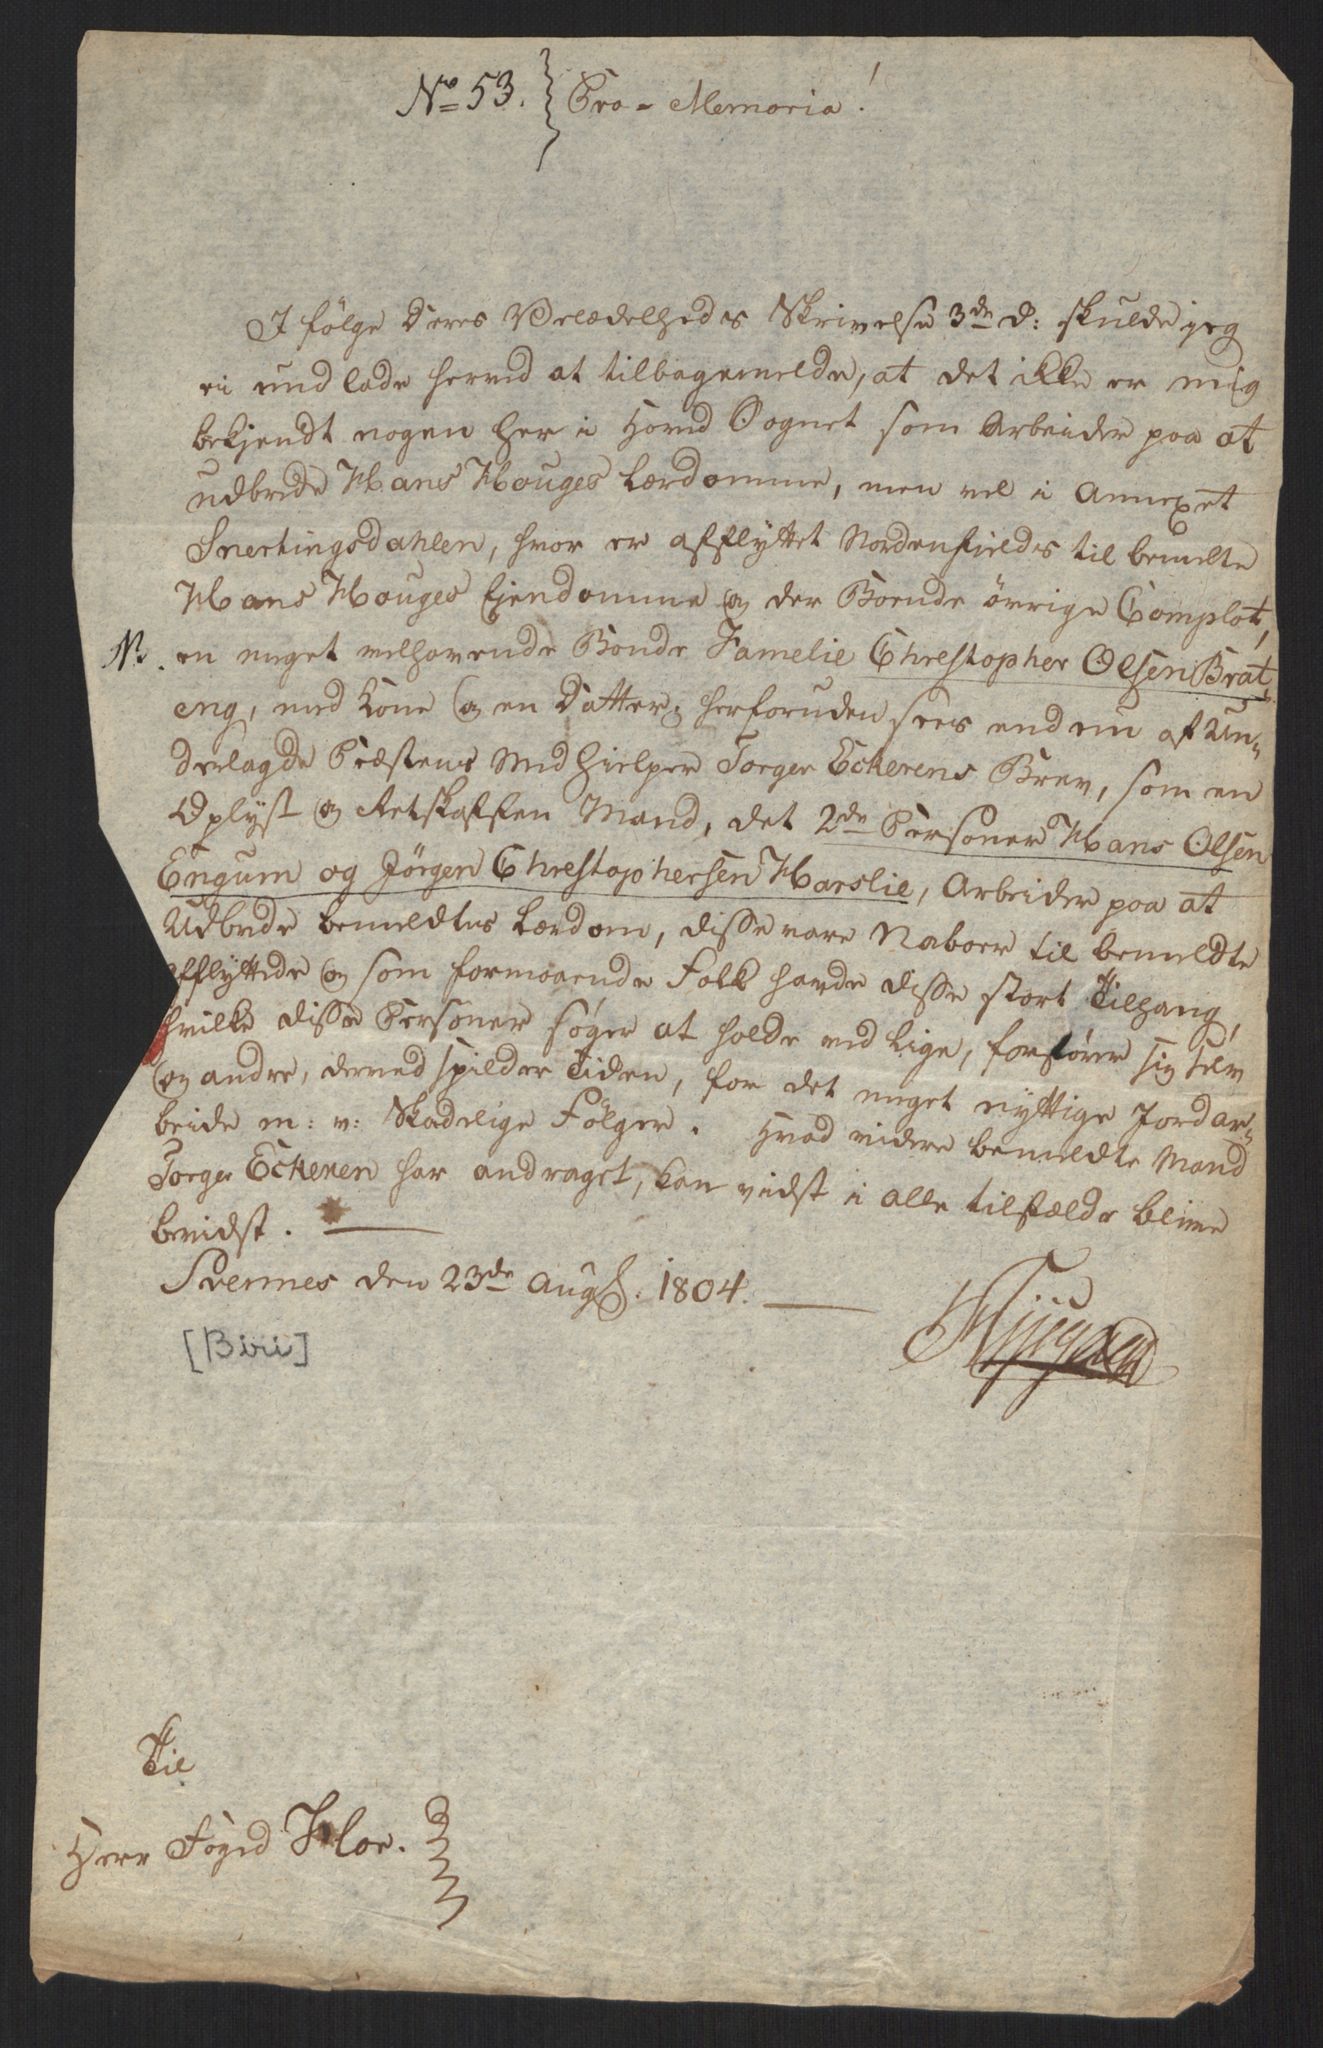 No 53. Pro-Memoria!
I følge Deres Velædelheds Skrivelse 3de d: skulde jeg
ei undlade herved at tilbagemelde, at det ikke er mig
bekjendt nogen her i Hoved Sognet som Arbeider paa at
udbrede Hans Houges Lærdomme, men vel i Annexet
Snertingsdahlen, hvor er afflyttet Nordenfields til bemelte
Hans Houges Ejendomme og der Boende övrige Complot,
NB. en meget velhavende Bonde Famelie Christopher Olsen Brat,,
eng, med Kone og en Datter; herforuden sees endnu af Un,,
derlagde Præstens Medhielper Torger Eckerens Brev, som en
Oplyst og Retskaffen Mand, det 2de Personer Hans Olsen
Engum og Jörgen Christophersen Harslie, Arbeider paa at
Udbrede bemeldtes Lærdom, disse vare Naboer til bemeldte
afflyttede og som formaaende Folk havde disse stort Tilhang,
hvilke disse Personer søger at holde ved Lige, forfører sig selv
og andre, derved spilder Tiden, for det meget nyttige Jordar,,
beide m: v: Skadelige Følger. Hvad videre bemeldte Mand
Torger Eckeren har andraget, kan vidst i alle tilfælde blive
bevidst.
Svennes den 23de Augs. 1804.
[Biri]
Til
Herr Foged Kloe.